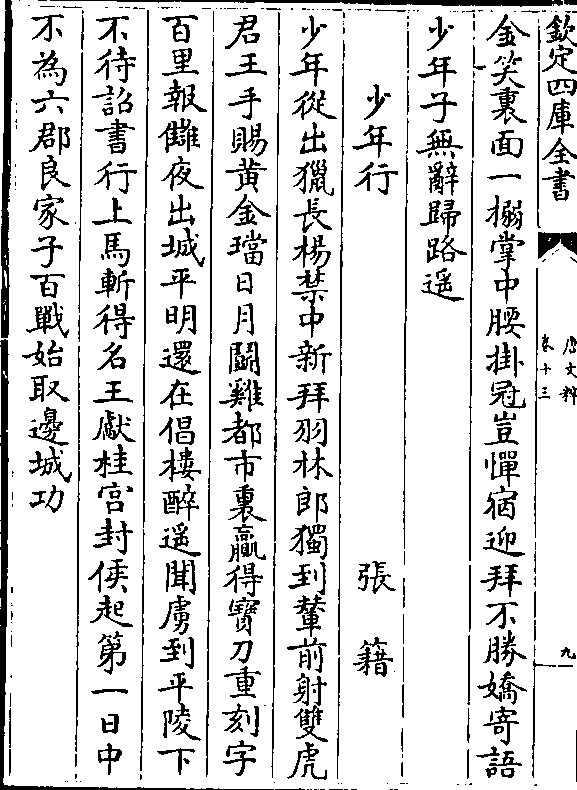 欽定四庫全書
唐文粹
卷十三
九
金笑裏面一搦掌中腰掛冠豈憚宿迎拜不勝嬌寄語
少年子無辭歸路遥
少年行
張籍
少年從出獵長楊禁中新拜羽林郎獨到輦前射雙虎
君王手賜黄金璫日月鬭雞都市裏贏得寳刀重刻字
百里報讎夜出城平明還在倡樓醉遥聞虜到平陵下
不待詔書行上馬斬得名王獻桂宫封侯起第一日中
不為六郡良家子百戰始取邊城功